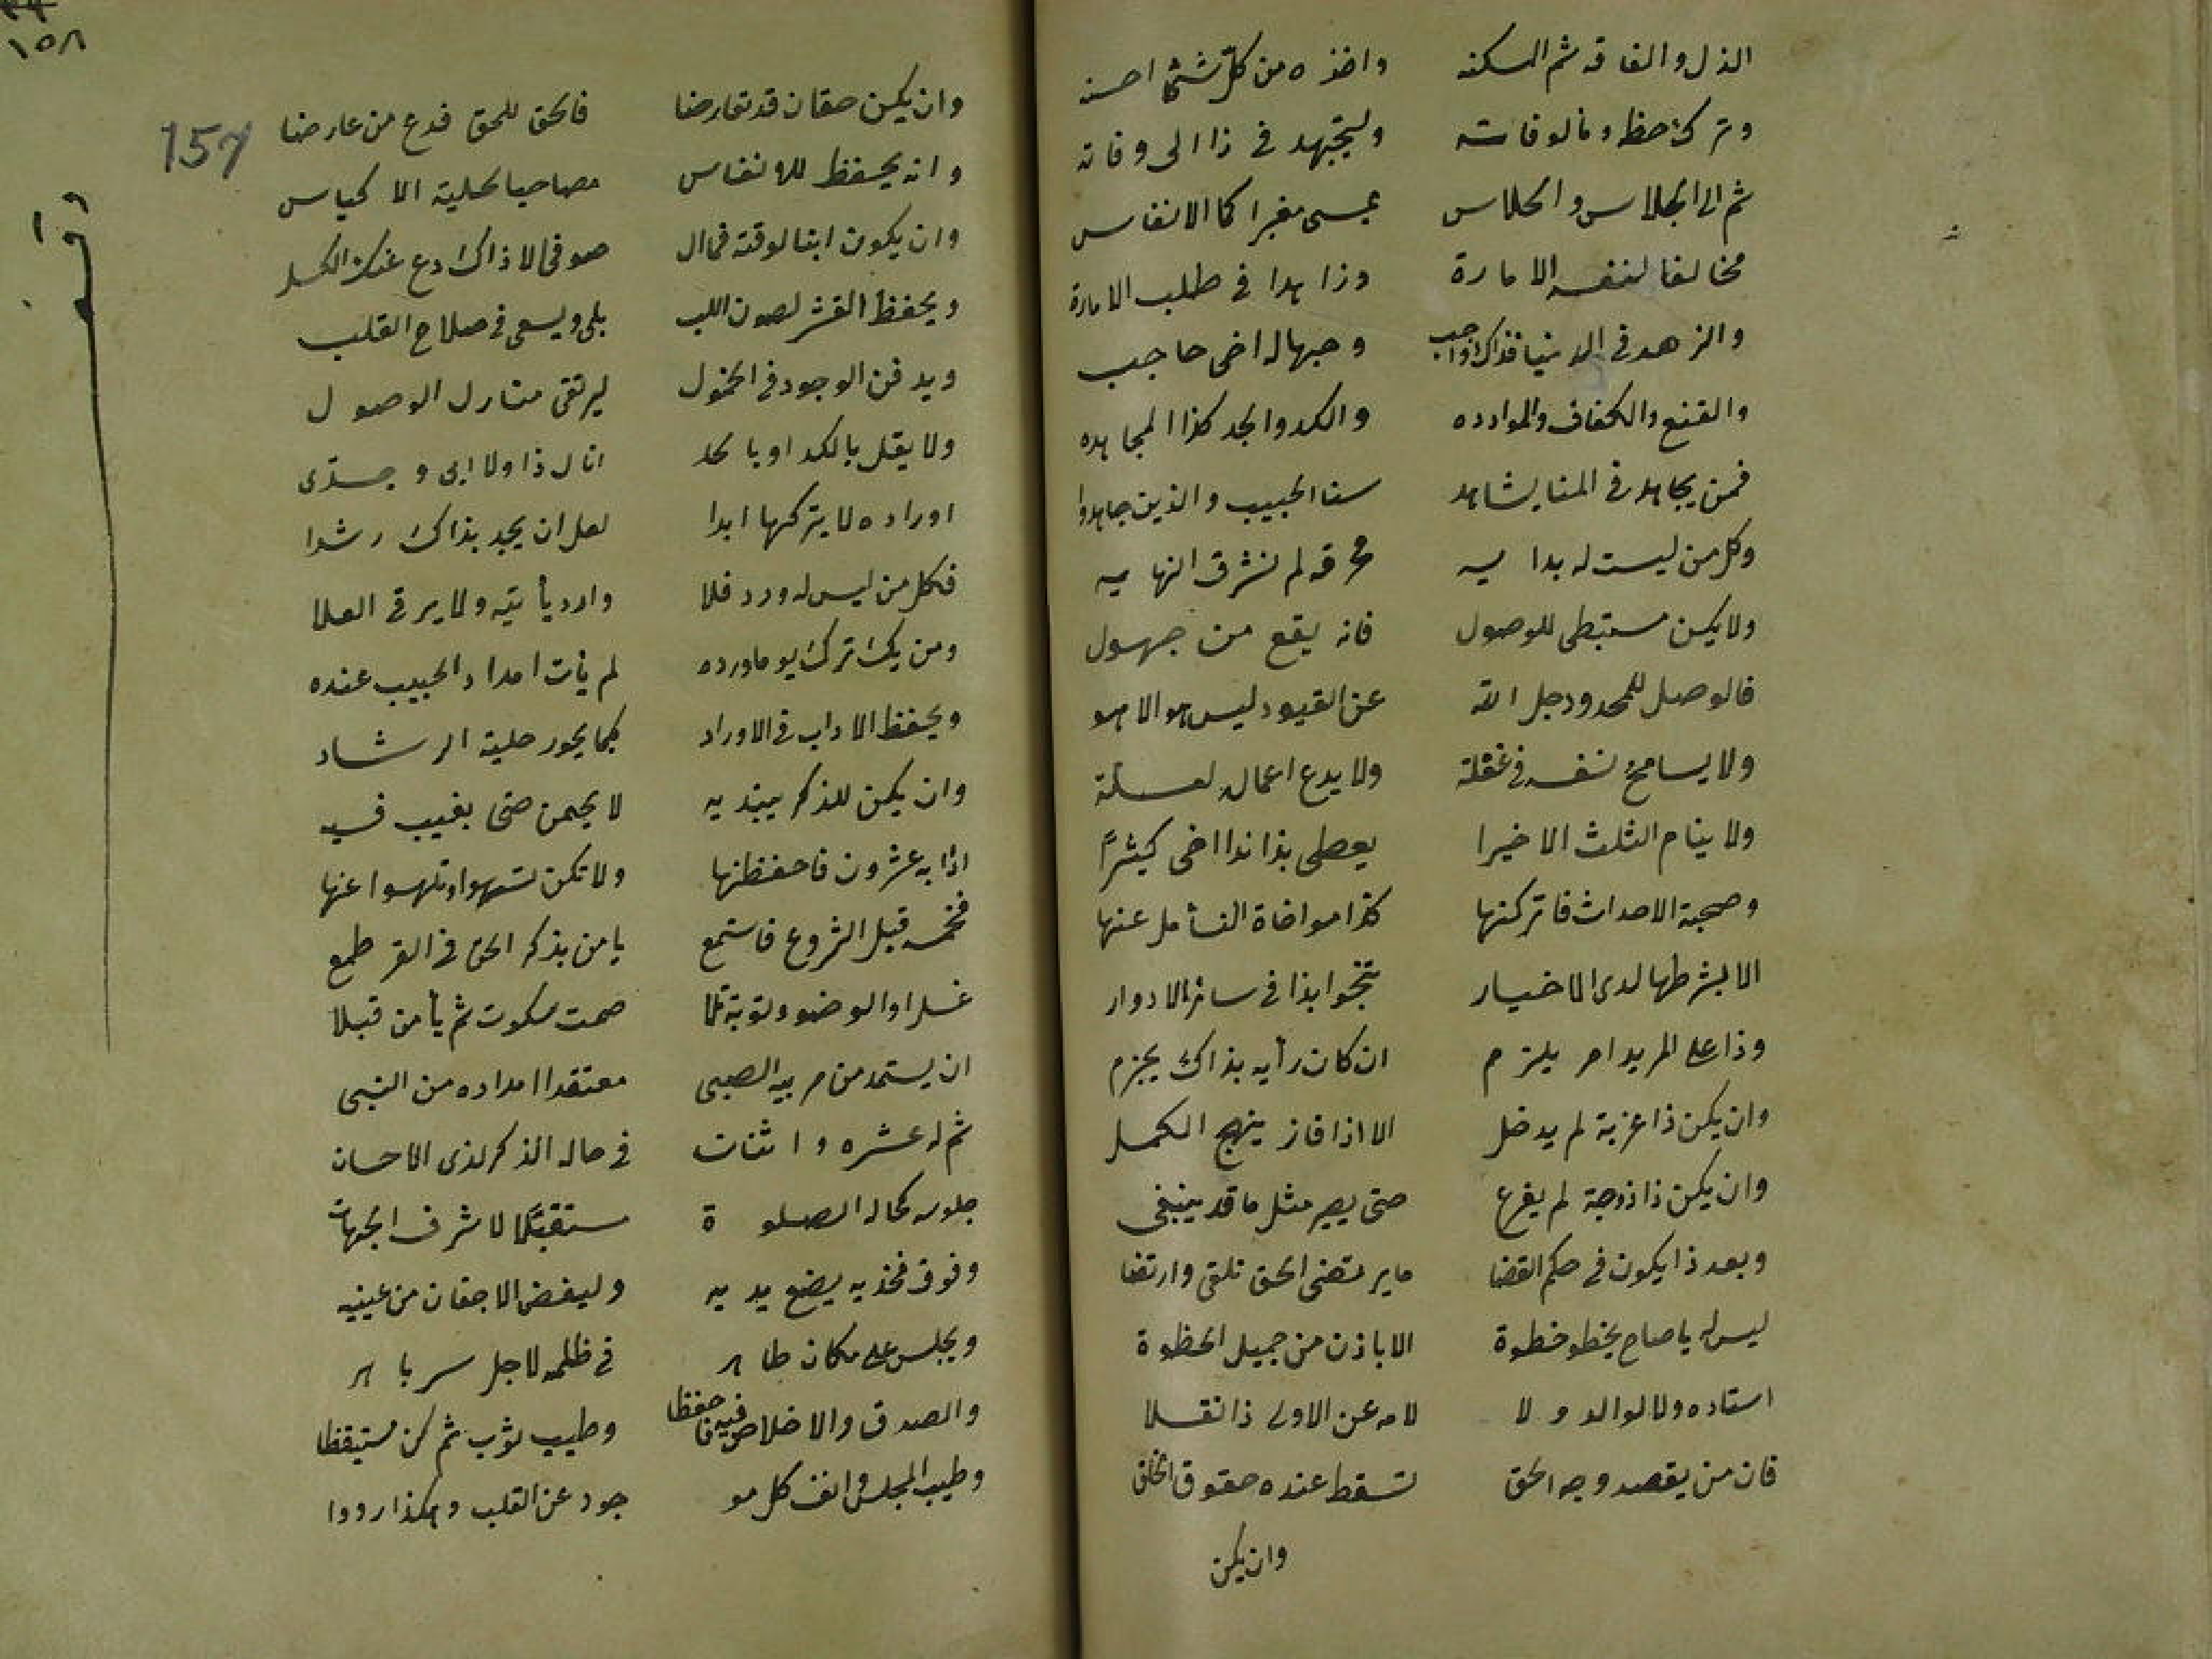 الذل والفاقه ثم المسكنه واخذه من كل شئ احسنه
وتركه حظه ومالوفاته وليجتهد في ذا الى وفاته
ثم الى الجلاس والحلاس عسى مغبرا كما الانفاس
مخالفا لنفسه الامارة وزاهدا في طلب الامارة
والزهد في الدنيا فذاك واجب وحبها له اخى حاجب
والقنع والكفاف والموادده والكد والجد كذا المجاهده
فمن يجاهد في المنا يشاهد سنا الحبيب والذين جاهدوا
وكل من ليست له بدايه محرقه لم تشرق النهايه
ولا يكن مستبطى للوصول فانه يقع من جهول
فالوصل للمحدود جل الله عن القيود ليس هو الا هو
ولا يسامح نفسه في غفلة ولا يدع اعماله لعلة
ولا ينام الثلث الاخيرا يعطى بذا ندا اخى كثيرا
وصحبة الاحداث فاتركنها كذا مواخاة النسا مل عنها
الا بشرطها لدى الاخيار تنجوا بذا في سائر الادوار
وذا على المريد امر يلزم ان كان رأيه بذاك يجزم
وان يكن ذا عزبة لم يدخل الا اذا فاز بنهج الكمل
وان يكن ذا زوجة لم يفرغ حتى يصير مثل ما قد ينبغى
وبعد ذا يكون في حكم القضا ما يرتضى الحق تلقى وارتضا
ليس له يا صاح يخطو خطوة الا باذن من جميل الحظوة
استاده ولا لوالد ولا لامه عن الاولى ذا نقلا
فان من يقصد وجه الحق تسقط عنده حقوق الخلق
وان يكن
١٥٨
157
وان يكن حقان قد تعارضا فالحق للحق فدع من عارضا
وانه يحفظ للانفاس مصاحبا لحلية الاكياس
وان يكون ابنا لوقته فما ال صوفى الا ذاك دع عنك الكسل
ويحفظ القشر لصون اللب بلى ويسعى في صلاح القلب
ويدفن الوجود في الخمول ليرتقى منازل الوصول
ولا يقل بالكد او بالجد انال ذا ولا ابى وجدى
اوراده لا يتركها ابدا لعل ان يجد بذاك رشدا
فكل من ليس له ورد فلا وارد يأتيه ولا يرقى العلا
ومن يك ترك يوما ورده لم يأت امداد الحبيب عنده
ويحفظ الاداب في الاوراد كيما يحوز حلية الرشاد
وان يكن للذكر يبتديه لا يجهمن حتى يغيب فيه
ادابه عشرون فاحفظنها ولا تكن تسهوا وتلهوا عنها
فخمسة قبل الشروع فاستمع يا من بذكر الحق في القرب طمع
غسلا او الوضو وتوبة تلا صمت سكوت ثم يأمن قبلا
ان يستمد من مربيه الصبى معتقدا امداده من النبى
ثم له عشره واثنان في حاله الذكر لذى الاحسان
جلوسه كحاله الصلوة مستقبلا لاشرف الجهات
وفوق فخذيه يضع يديه وليغض الاجفان من عينيه
ويجلس على مكان طاهر في ظلمه لاجل سر باهر
والصدق والاخلاص فيه فاحفظا وطيب ثوب ثم كن مستيقظا
وطيب المجلس وانف كل مو جود عن القلب وهكذا رووا